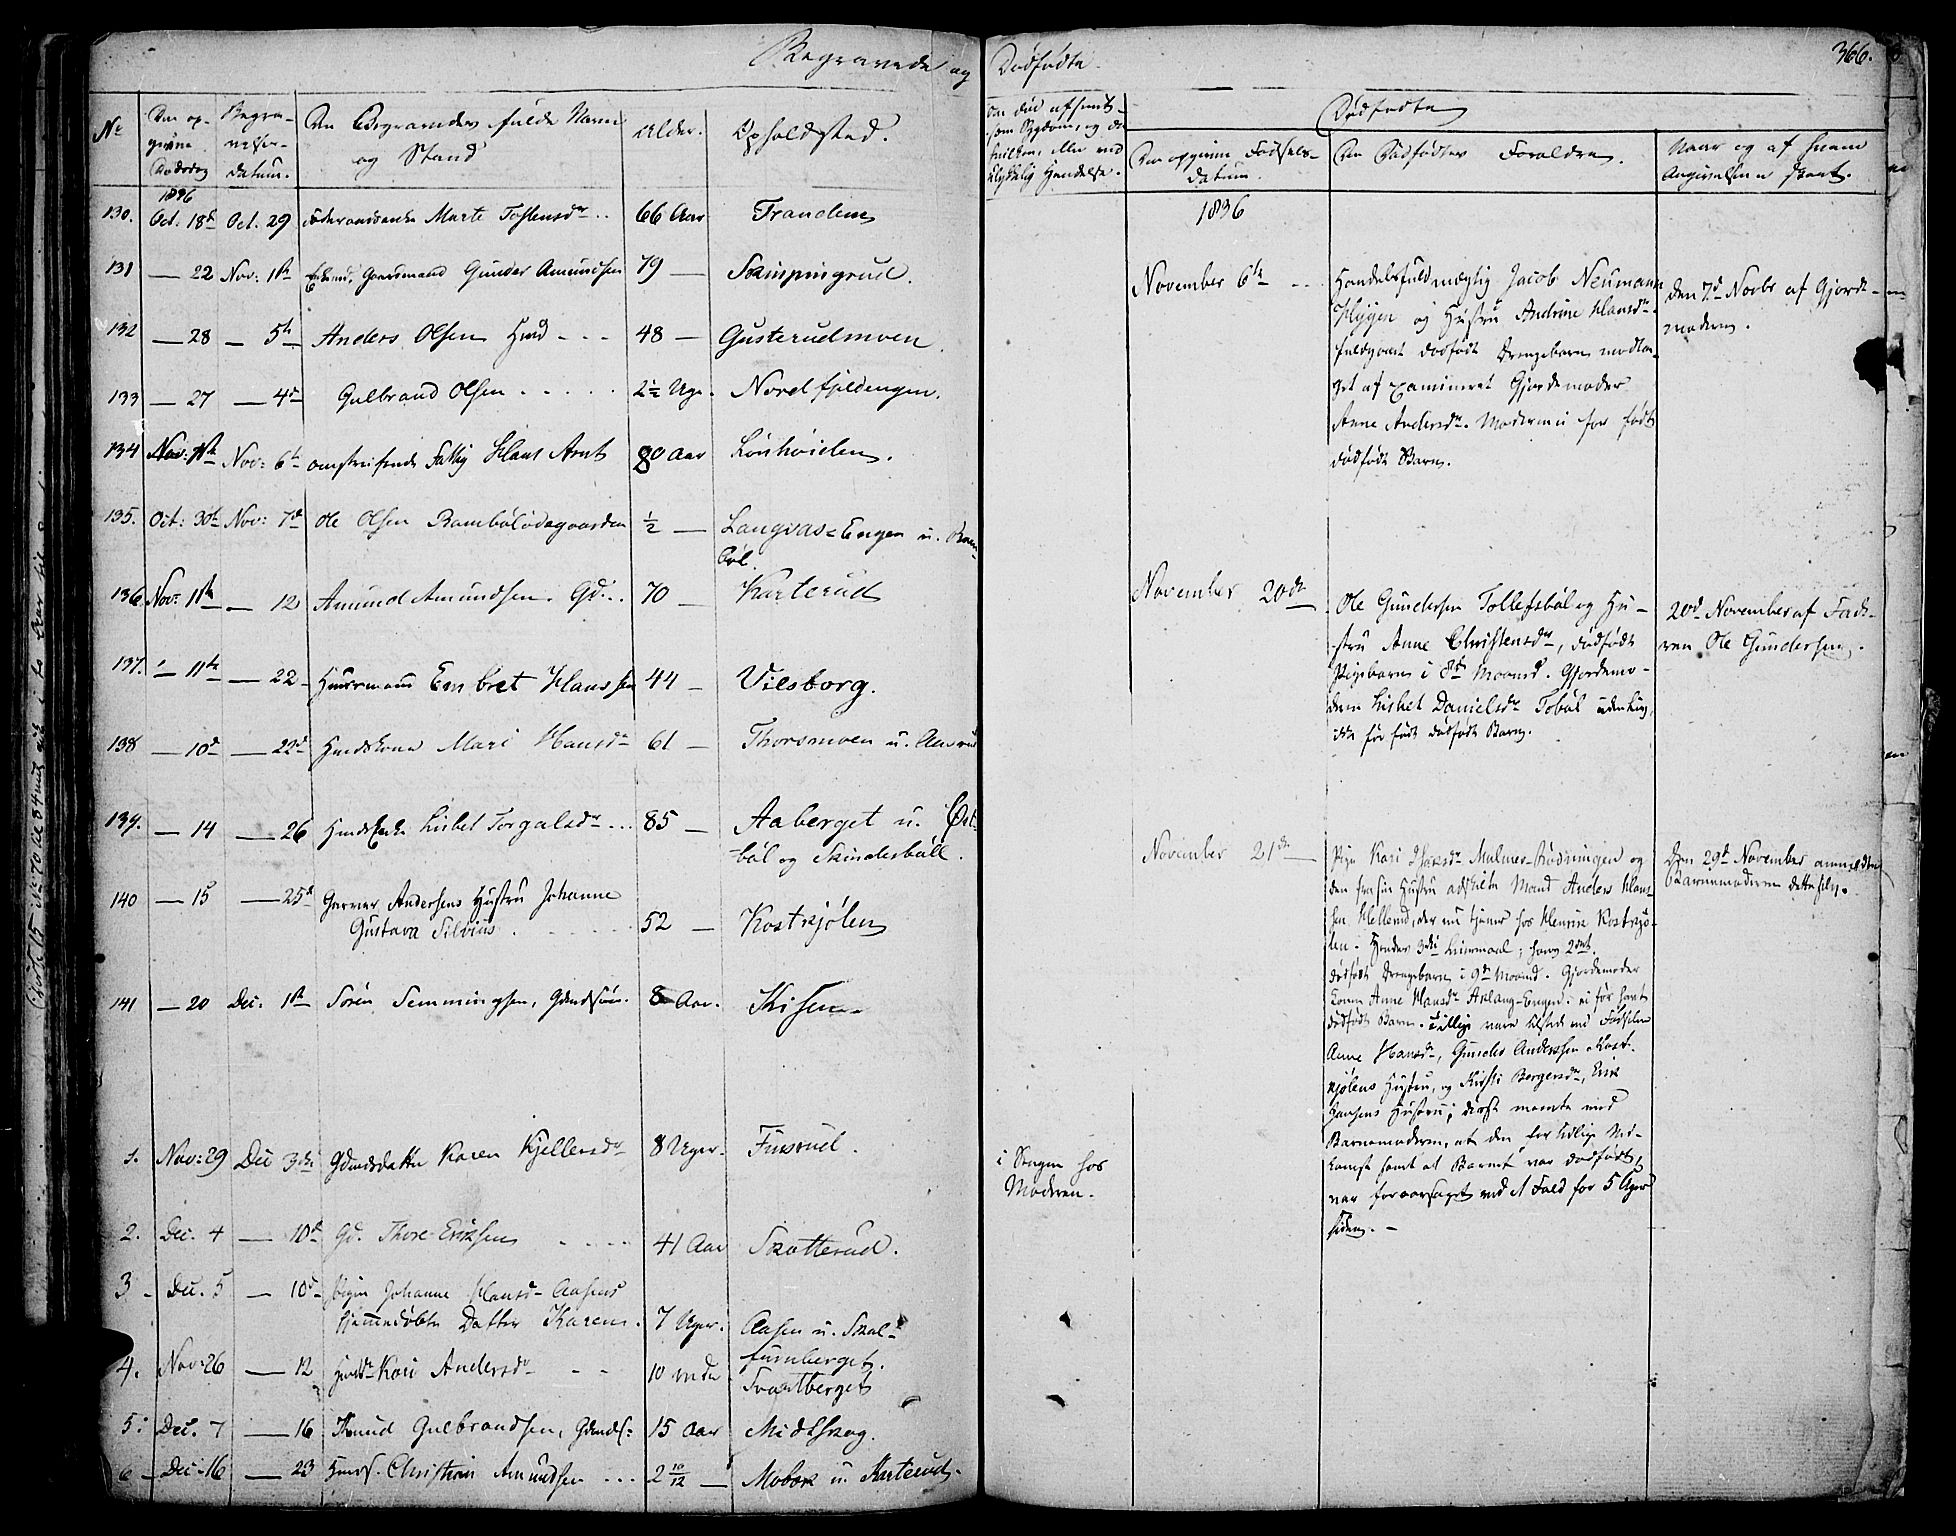 Begravede og Dødfødte
366.
No
Den op-
givne
Dødsdag
Begra-
velses-
datum.
Den Begravedes fulde Navn
og Stand
Alder.
Opholdssted.
1836
130. Oct. 18de Oct. 29 Marte Tostensdr .. 66 Aar Tranden
131 — 22 Nov: 1ste Gunder Amundsen 79 — Skimpingrud.
132 — 28 — 5te Anders Olsen Hmd - - - 48 — Gusterudmoen.
133 — 27 — 4de Gulbrand Olsen . . . . . 2½ Uge. Nordfjeldengen.
134 Nov: 1ste Nov: 6te omstreifende Fattig Hans Arnt 80 Aar Lønhøiden.
135. Oct: 30te Nov: 7de Ole Olsen Rambølødegaarden ½ — Langnas=Engen u. Ram-
bøl.
136. Nov: 11te — 12 Amund Amundsen. Gd... 70 — Karterud
137. — 11te — 22 Huusmand Embret Hanssen 44 — Vilsborg.
138 — 10de — 22de Hmdskone Mari Hansdr 61 — Thorsmoen u. Aaserud
139. — 14 — 26 Hmds Enke Lisbet Torgalsdr ... 85 — Aaberget u. Øst-
bøl og Skinderbøll.
140 — 15 — 25de Garver Andersens Hustru Johanne
Gustava Silvius . - - - - 52 — Kostkjølen
141 — 20 Dec. 1ste Søren Semmingsen, Gdmdssøn. 8 Aar. Kisen.
1. Nov: 29 Dec 3die Gdmdsdatter Karen Kjellersdr 8 Uger. Finsrud.
2. Dec. 4 — 10de Gd. Thore Eriksen - - - - 41 Aar Skotterud.
3 - Dec. 5 — 10de Pigen Johanne Hansdr Aasens
hjemmedøbte Datter Karen. 7 Uger. Aasen u. Skal-
furuberget.
4. Nov: 26 — 12 Hmdsdr Kari Andersdr - - 10 mdr Svartberget
5. Dec. 7 — 16 Knud Gulbrandsen, Gdmds: 15 Aar Midtskog.
6 - Dec: 16 — 23 Hmdss. Christian Amundsen ... 2 10/12 — Mobæk u. Karterud.
i Sengen hos
Moderen.
Dødfødte
Den opgivne Fødsels-
datum.
Den Dødfødtes Forældre.
Naar og af hvem
Angivelsen er skeet.
1836
November 6te - - -
Handelsfuldmægtig Jacob Neumann
Hygen og Hustru Andrine Hansdr.
fuldbaaret dødfødt Drengebarn modta-
get af examineret Gjordemoder
Anne Andersdr. Moderen ei før født
dødfødt Barn.
den 7de Novbr af Gjorde-
moderen.
November 20de
Ole Gundersen Tollefsbøl og Hu-
stru Anne Christensdr, dødfødt
Pigebarn i 8de Maaned. Gjordemo-
deren Lisbet Danielsdr Tobøl
ikke før født dødfødt Barn.
20de November af Fade-
ren Ole Gundersen.
November 21de
Pige Kari Malmer-Rødningen og
den fra sin Hustru adskilte Mand Anders Hans-
sen Helland, der nu tjener hos Henrik Kostkjø-
len. Hendes 3die Leiermaal; hans 2det.
dødfødt Drengebarn i 9de Maaned. Gjordemoder
Konen Anne Hansdr Aslang-Engen. ei før havt
dødfødt Barn. Tillige vare tilstede ved Fødselen
Anne Hansdr, Gunder Andersen Kost-
kjølens Hustru, og Kirsti Borgersdr, Erik
Jansens Hustru; disse meente med
Barnemoderen, at den for tidlige Ned-
komst samt at Barnet var dødfødt,
var foraarsaget ved et Fald for 5 Uger
siden. -
den 29de November anmeldte
Barnemoderen dette selv.